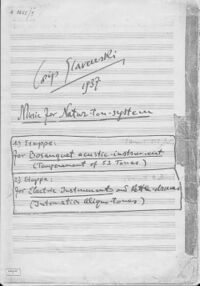 Josip Slavenski
1937
Music for Natur-ton-system
1) Etappe:
for Bosanquet acustic-instrument
(Temperament of 53 Tones)
2) Etappe:
for Electric Instruments and Kettle-drums
(Intonation Aliquo-tones)